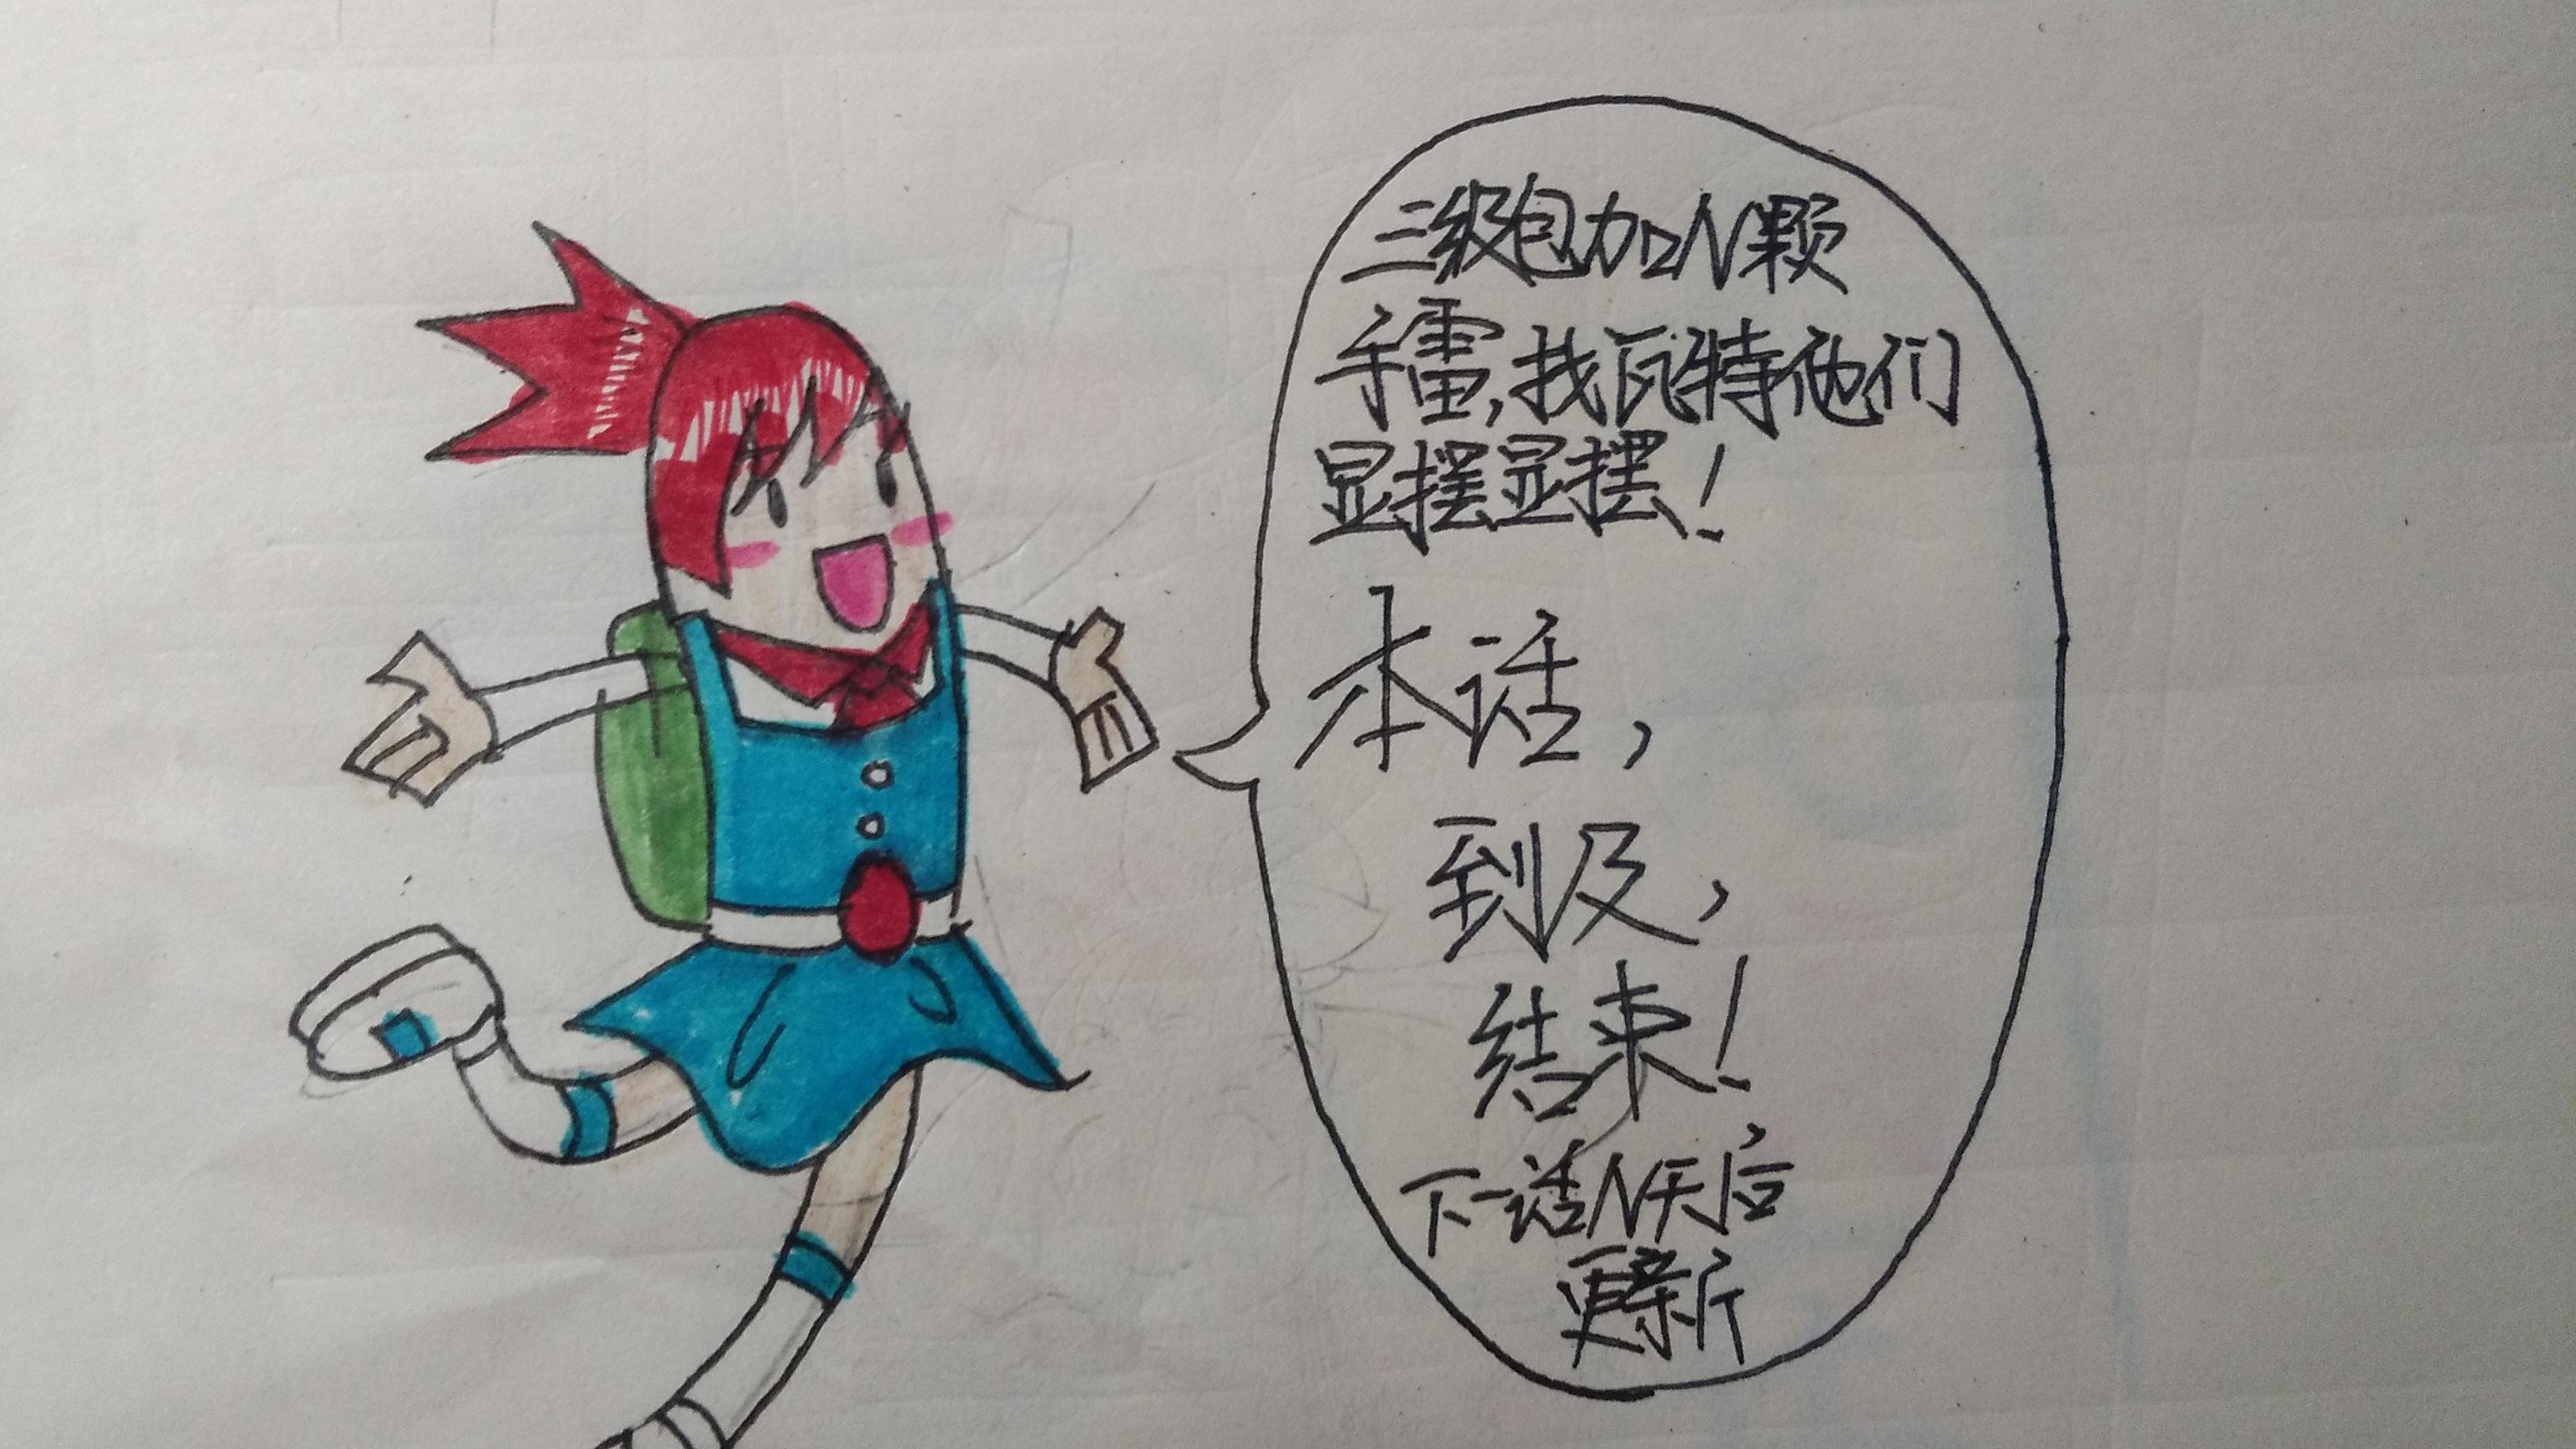 三级包加N颗
手雷,找瓦特他们
显摆显摆!
本话,
到及,
结束!
下一话N天后
更新